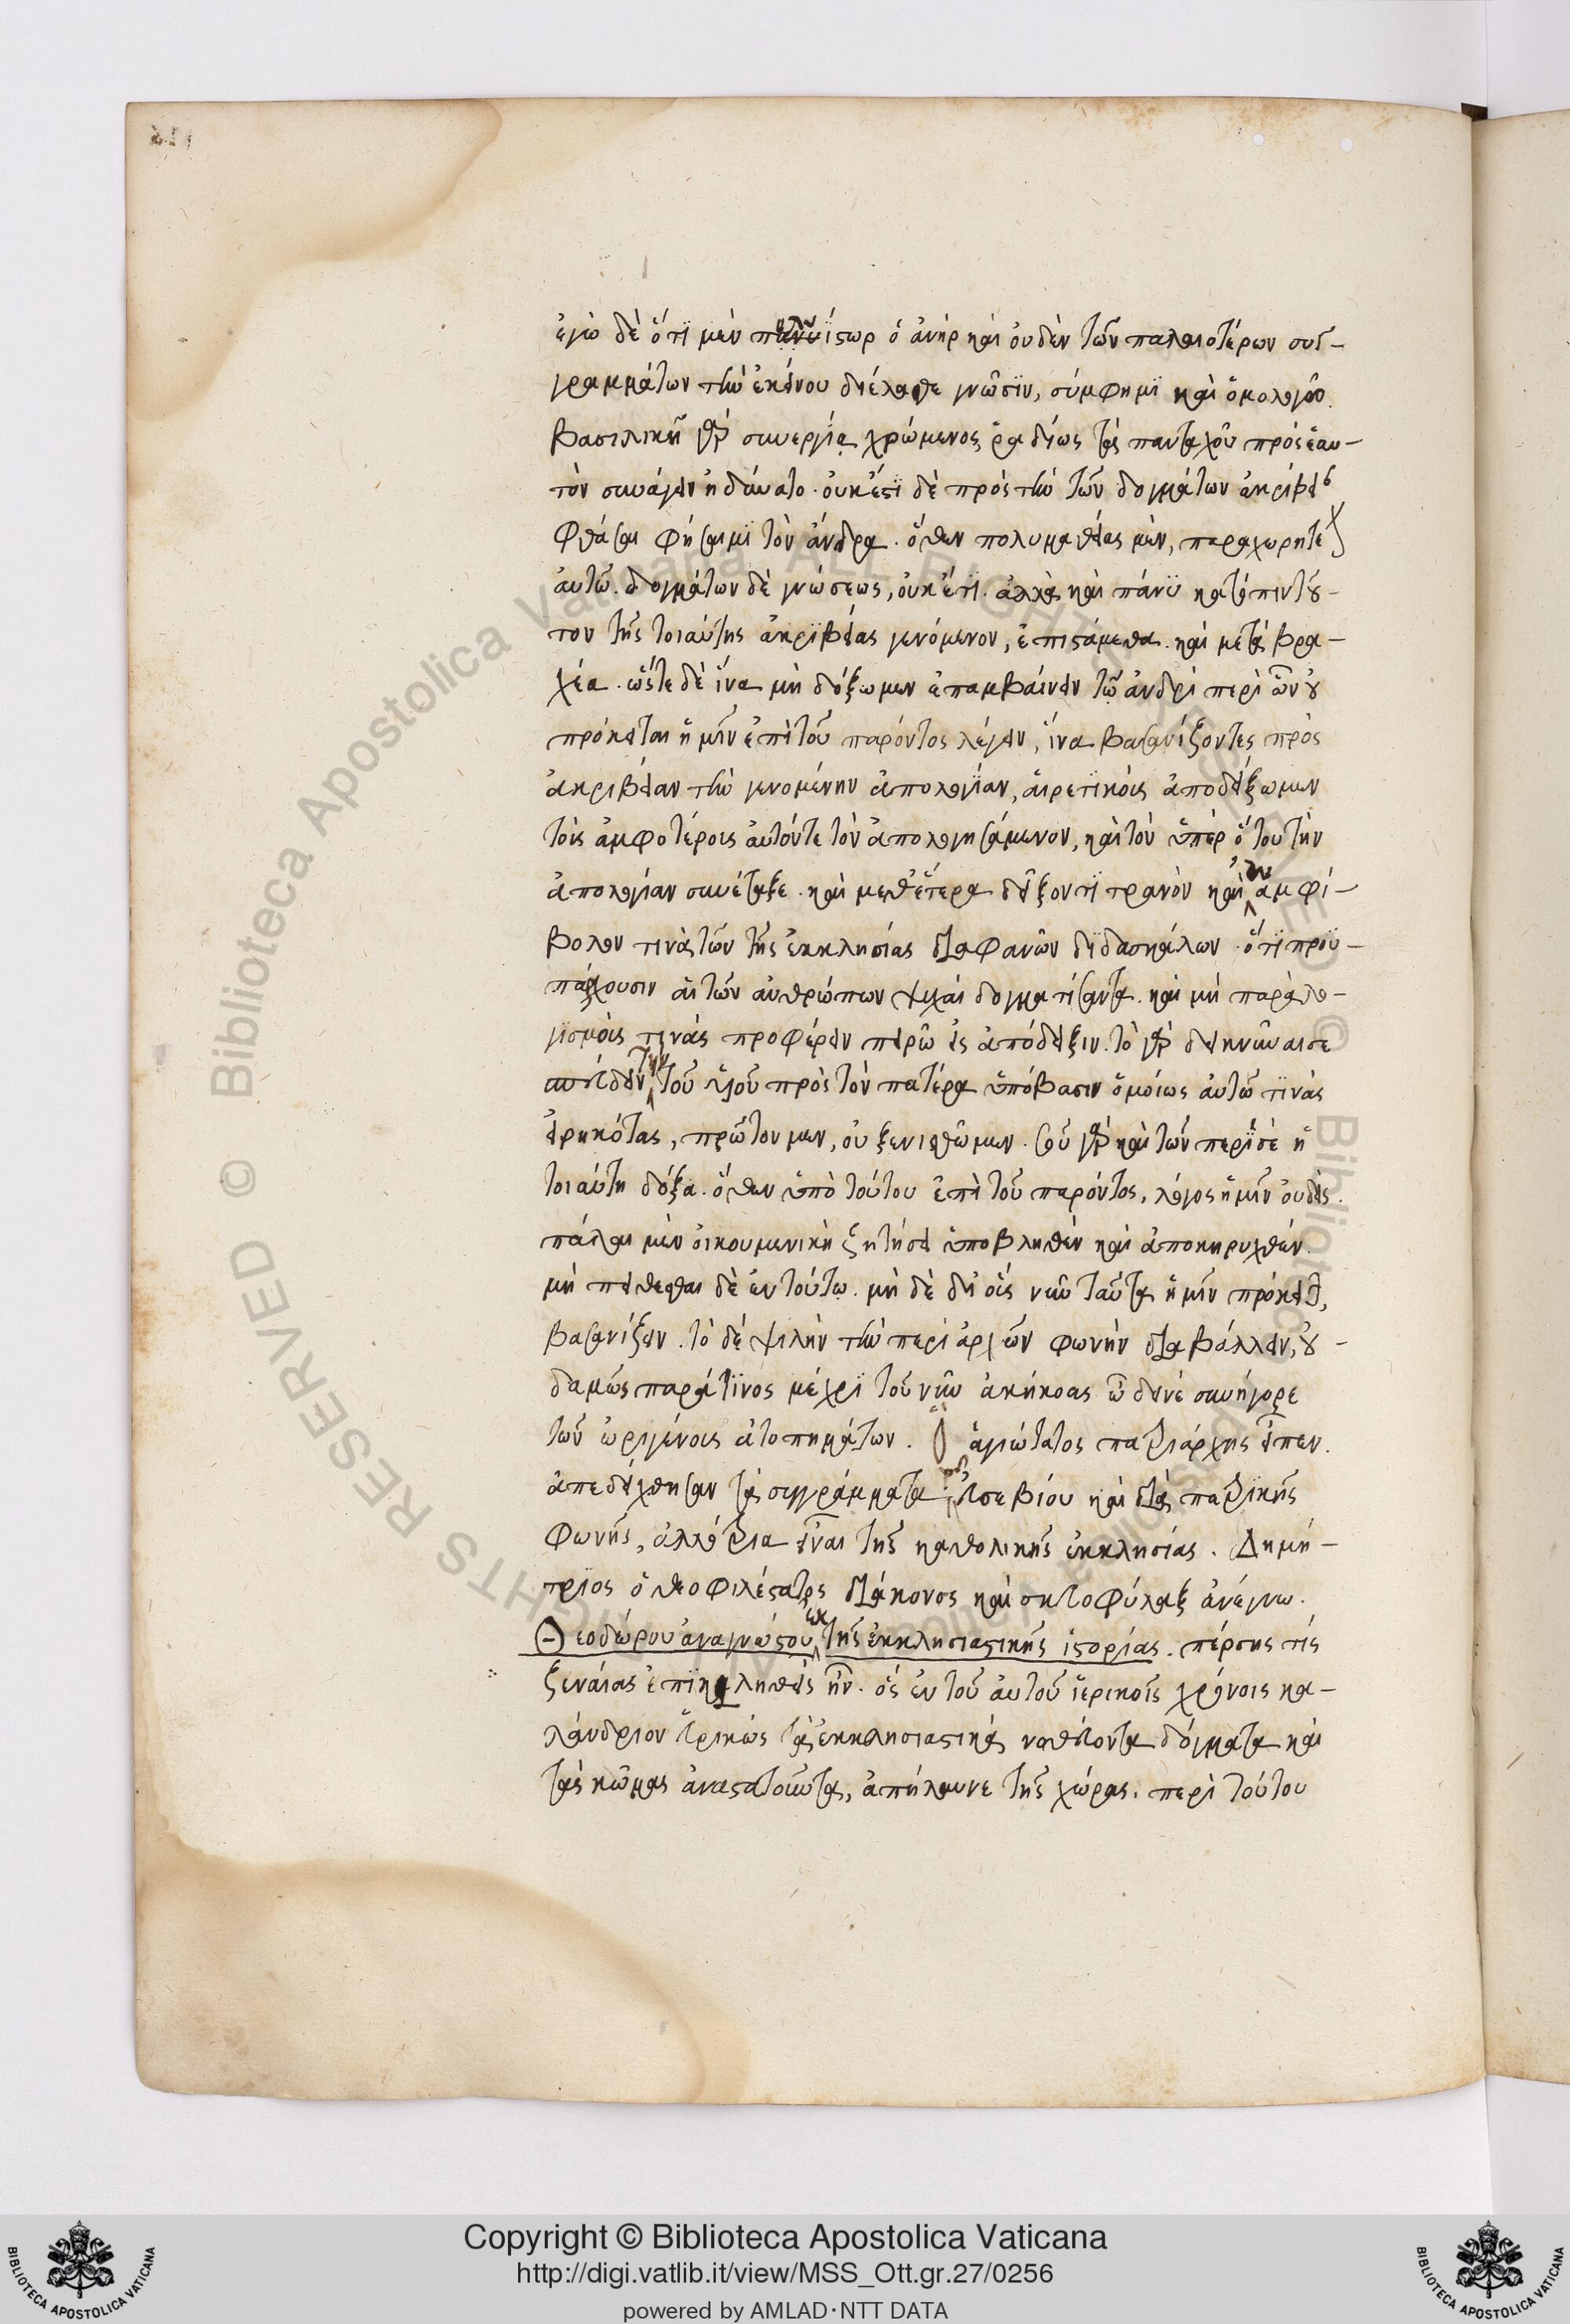 ἐγὼ δὲ ὅτι μὲν πολυΐστωρ ὁ ἀνὴρ καὶ οὐδὲν τῶν παλαιοτέρων συγ-
γραμμάτων τὴν ἐκείνου διέλαθε γνῶσιν, σύμφημι καὶ ὁμολογῶ.
βασιλικῆ γὰρ συνεργία χρώμενος ῥαδίως τὰ πανταχοῦ πρὸς ἑαυ-
τὸν συνάγειν ἠδύνατο. οὐκέτι δὲ πρὸς τὴν τῶν δογμάτων ἀκρίβειαν
φθάσαι φήσαιμι τὸν ἄνδρα. ὅθεν πολυμαθείας μὲν, παραχωρητέον
αὐτῶ. δογμάτων δὲ γνώσεως, οὐκέτι. ἀλλὰ καὶ πάνυ κατόπιν τού-
του τῆς τοιαύτης ἀκριβείας γενόμενον, ἐπιστάμεθα. καὶ μετὰ βρα-
χέα. ὥστε δὲ ἵνα μὴ δόξωμεν ἐπεμβαίνειν τῶ ἀνδρὶ περὶ ὧν οὐ
πρόκειται ἡμῖν ἐπὶ τοῦ παρόντος λέγειν, ἵνα βασανίζοντες πρὸς
ἀκρίβειαν τὴν γενομένην ἀπολογίαν, αἱρετικοὺς ἀποδείξωμεν
τοὺς ἀμφοτέρους αὐτόν τε τὸν ἀπολογησάμενον, καὶ τὸν ὑπὲρ ὅτου τὴν
ἀπολογίαν συνέταξε. καὶ μεθ' ἕτερα δεῖξον τι τρανὸν καὶ ἀναμφί-
βολον τινὰ τῶν τῆς ἐκκλησίας διαφανῶν διδασκάλων ὅτι προϋ-
πάρχουσιν αἱ τῶν ἀνθρώπων ψυχαὶ δογματίσαντα. καὶ μὴ παραλο-
γισμοὺς τινὰς προφέρειν πειρῶ εἰς ἀπόδειξιν. τὸ γὰρ δεικνῦναι σε
τὴν τοῦ υἱοῦ πρὸς τὸν πατέρα ὑπόβασιν ὁμοίως αὐτῶ τινὰς
εἰρηκότας, πρῶτον μὲν, οὐ ξενισθῶμεν. σοῦ γὰρ καὶ τῶν περὶ σὲ ἡ
τοιαύτη δόξα. ὅθεν ὑπὸ τούτου ἐπὶ τοῦ παρόντος, λόγος ἡμῖν οὐδεὶς.
πάλαι μὲν οἰκουμενικὴ ζητήσει ὑποβληθὲν καὶ ἀποκηρυχθέν.
μὴ πείθεσθαι δὲ ἐν τούτω. μὴ δὲ δι' οἷς νῦν ταῦτα ἡμῖν πρόκειται,
βασανίζειν. τὸ δὲ ψιλὴν τὴν περὶ ἀρχῶν φωνὴν διαβάλλειν, οὐ-
δαμῶς παρά τινος μέχρι τοῦ νῦν ἀκήκοας ὦ δεινὲ συνήγορε
τῶν ὠριγένους ἀτοπημάτων. Ὁ ἁγιώτατος πατριάρχης εἶπεν.
ἀπεδείχθησαν τὰ συγγράμματα εὐσεβίου καὶ διὰ πατρικῆς
φωνῆς, ἀλλότρια εἶναι τῆς καθολικῆς ἐκκλησίας. Δημή-
τριος ὁ θεοφιλέστατος διάκονος καὶ σκευοφύλαξ ἀνέγνω.
Θεοδώρου ἀναγνώστου ἐκ τῆς ἐκκλησιαστικῆς ἱστορίας. πέρσης τίς
ξεναίας ἐπικληθεὶς ἦν. ὃς ἐν τοῦ αὐτοῦ ἱερικοῖς χρόνοις κα-
λάνδριον εὑρικὼς τὰ ἐκκλησιαστικὰ νοθεύοντα δόγματα καὶ
τὰς κώμας ἀναστατοῦντα, ἀπήλαυνε τῆς χώρας. περὶ τούτου
Copyright © Biblioteca Apostolica Vaticana
http://digi.vatlib.it/view/MSS_Ott.gr.27/0256
powered by AMLAD·NTT DATA